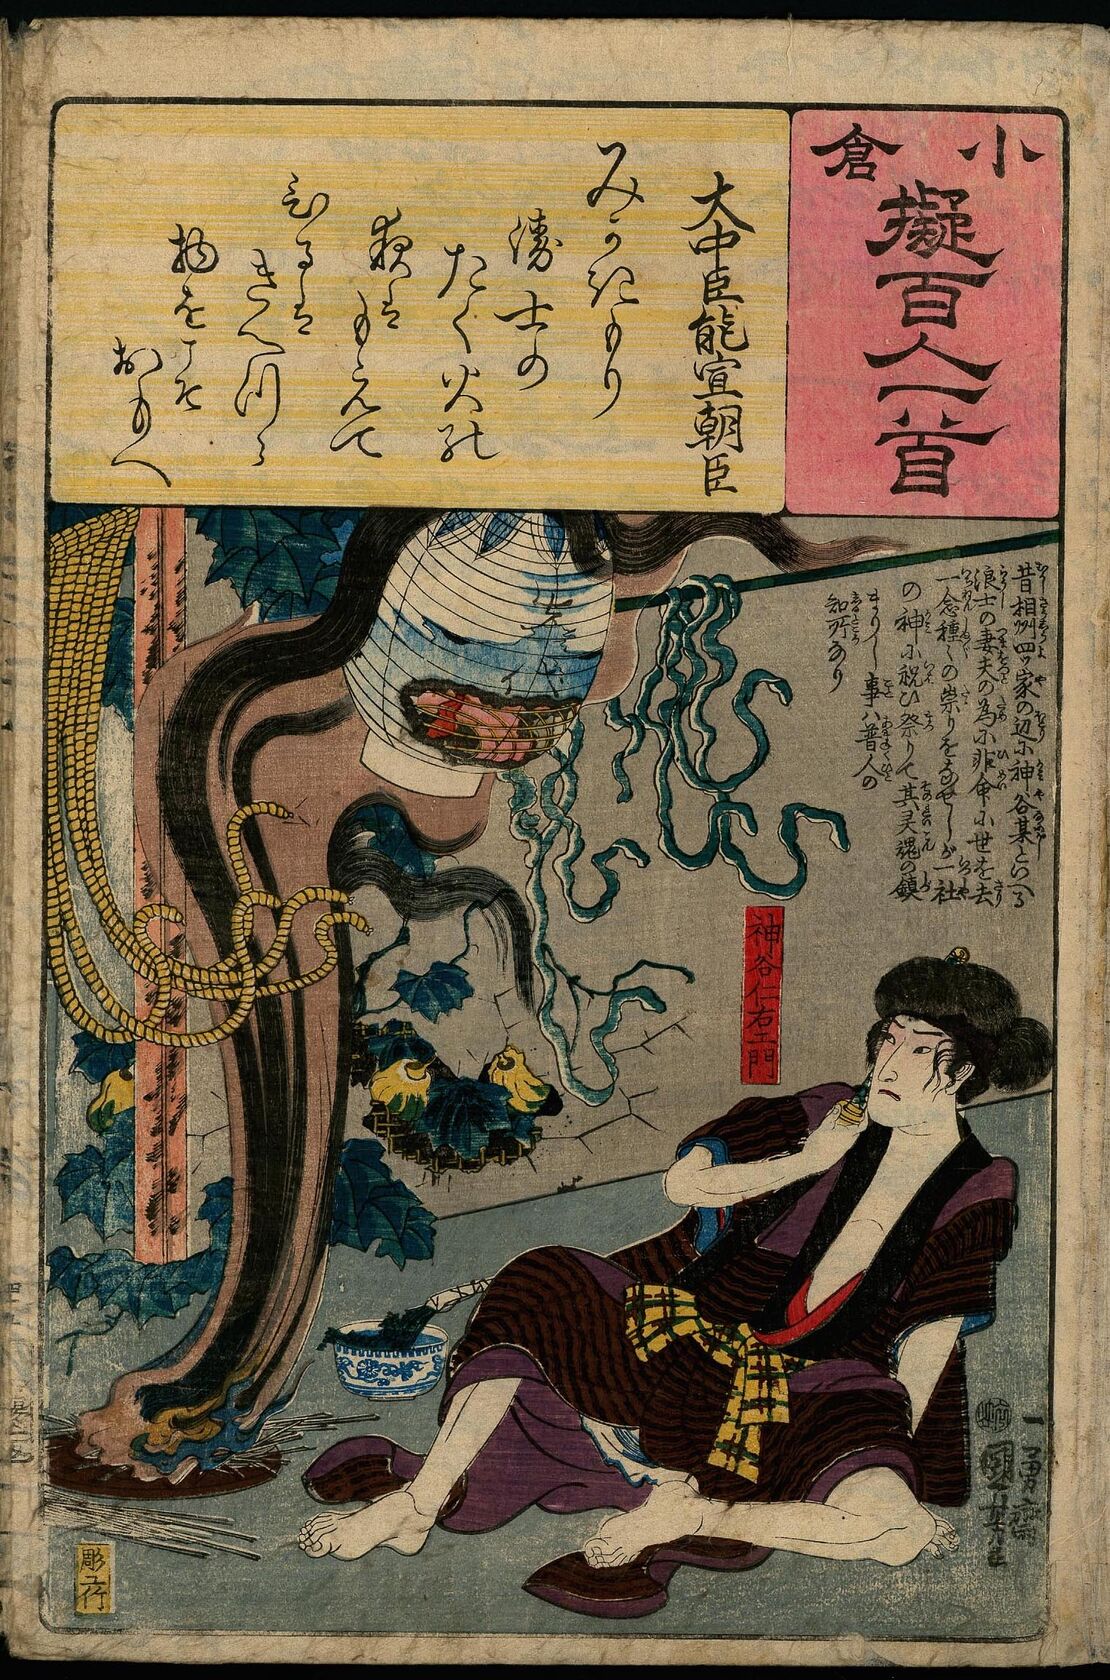 小倉
擬百人一首
大中臣能宣朝臣
みかきもり
衛士の
たく火の
夜は
もえて
ひるは
きえつゝ
物をこそ
おもへ
昔相州四ツ家の辺に神谷某といへる
浪士の妻夫の為に非命に世を去
一念種々の祟りをなせしが一社
の神に祝ひ祭りて其灵魂の鎮
まりし事ハ普人の
知所なり
神谷仁右エ門
一勇齋
國芳画
彫工竹